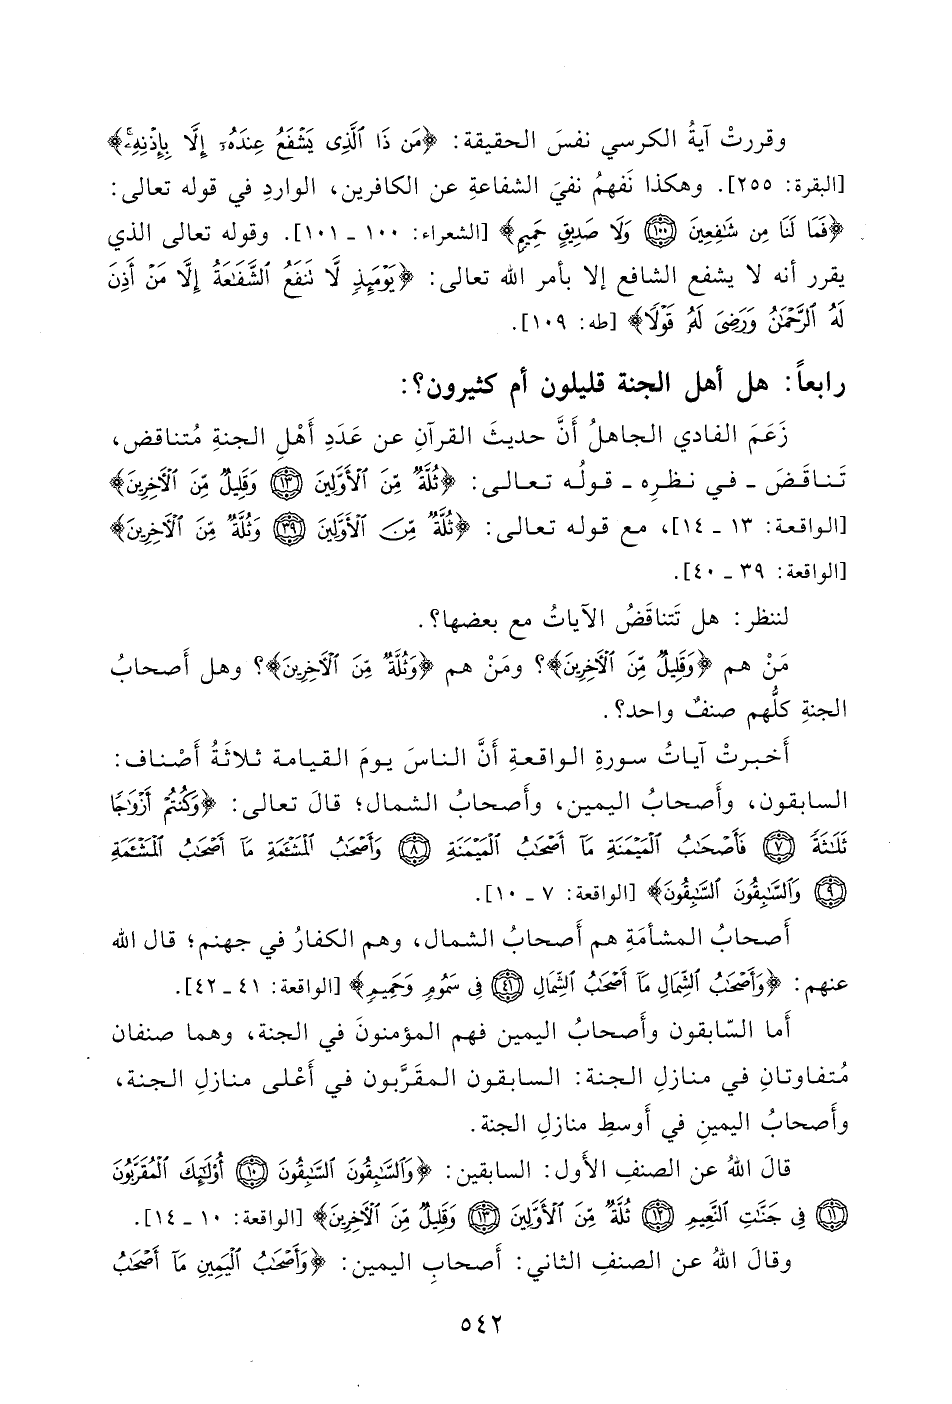 وقررتْ آيةُ الكرسي نفسَ الحقيقة: ﴿مَن ذَا ٱلَّذِى يَشْفَعُ عِندَهُۥٓ إِلَّا بِإِذْنِهِۦ﴾
[البقرة: ٢٥٥]. وهكذا نَفهمُ نفيَ الشفاعةِ عن الكافرين، الواردِ في قوله تعالى:
﴿فَمَا لَنَا مِن شَٰفِعِينَ ١٠٠ وَلَا صَدِيقٍ حَمِيمٍ﴾ [الشعراء: ١٠٠ ـ ١٠١]. وقوله تعالى الذي
يقرر أنه لا يشفع الشافع إلا بأمر الله تعالى: ﴿يَوْمَئِذٍ لَّا تَنفَعُ ٱلشَّفَٰعَةُ إِلَّا مَنْ أَذِنَ
لَهُ ٱلرَّحْمَٰنُ وَرَضِىَ لَهُۥ قَوْلًا﴾ [طه: ١٠٩].
رابعاً: هل أهل الجنة قليلون أم كثيرون؟:
زَعَمَ الفادي الجاهلُ أَنَّ حديثَ القرآنِ عن عَدَدِ أَهْلِ الجنةِ مُتناقض،
تَناقَضَ ـ في نظرِه ـ قولُه تعالى: ﴿ثُلَّةٌ مِّنَ ٱلْأَوَّلِينَ ١٣ وَقَلِيلٌ مِّنَ ٱلْأَخِرِينَ﴾
[الواقعة: ١٣ ـ ١٤]، مع قوله تعالى: ﴿ثُلَّةٌ مِّنَ ٱلْأَوَّلِينَ ٣٩ وَثُلَّةٌ مِّنَ ٱلْأَخِرِينَ﴾
[الواقعة: ٣٩ ـ ٤٠].
لننظر: هل تَتناقَضُ الآياتُ مع بعضها؟.
مَنْ هم ﴿وَقَلِيلٌ مِّنَ ٱلْأَخِرِينَ﴾؟ ومَنْ هم ﴿وَثُلَّةٌ مِّنَ ٱلْأَخِرِينَ﴾؟ وهل أَصحابُ
الجنةِ كلُّهم صنفٌ واحد؟.
أَخبرتْ آياتُ سورةِ الواقعةِ أَنَّ الناسَ يومَ القيامة ثلاثَةُ أَصْناف:
السابقون، وأَصحابُ اليمين، وأَصحابُ الشمال؛ قالَ تعالى: ﴿وَكُنتُمْ أَزْوَٰجًا
ثَلَٰثَةً ٧ فَأَصْحَٰبُ ٱلْمَيْمَنَةِ مَآ أَصْحَٰبُ ٱلْمَيْمَنَةِ ٨ وَأَصْحَٰبُ ٱلْمَشْـَٔمَةِ مَآ أَصْحَٰبُ ٱلْمَشْـَٔمَةِ
٩ وَٱلسَّٰبِقُونَ ٱلسَّٰبِقُونَ﴾ [الواقعة: ٧ ـ ١٠].
أَصحابُ المشأمَةِ هم أَصحابُ الشمال، وهم الكفارُ في جهنم؛ قال الله
عنهم: ﴿وَأَصْحَٰبُ ٱلشِّمَالِ مَآ أَصْحَٰبُ ٱلشِّمَالِ ٤١ فِى سَمُومٍ وَحَمِيمٍ﴾ [الواقعة: ٤١ ـ ٤٢].
أَما السّابقون وأَصحابُ اليمين فهم المؤمنونَ في الجنة، وهما صنفان
مُتفاوتانِ في منازلِ الجنة: السابقون المقرَّبون في أَعْلى منازلِ الجنة،
وأَصحابُ اليمينِ في أَوسطِ منازلِ الجنة.
قالَ اللهُ عن الصنفِ الأَول: السابقين: ﴿وَٱلسَّٰبِقُونَ ٱلسَّٰبِقُونَ ١٠ أُوْلَٰٓئِكَ ٱلْمُقَرَّبُونَ
١١ فِى جَنَّٰتِ ٱلنَّعِيمِ ١٢ ثُلَّةٌ مِّنَ ٱلْأَوَّلِينَ ١٣ وَقَلِيلٌ مِّنَ ٱلْأَخِرِينَ﴾ [الواقعة: ١٠ ـ ١٤].
وقالَ اللهُ عن الصنفِ الثاني: أَصحابِ اليمين: ﴿وَأَصْحَٰبُ ٱلْيَمِينِ مَآ أَصْحَٰبُ
٥٤٢